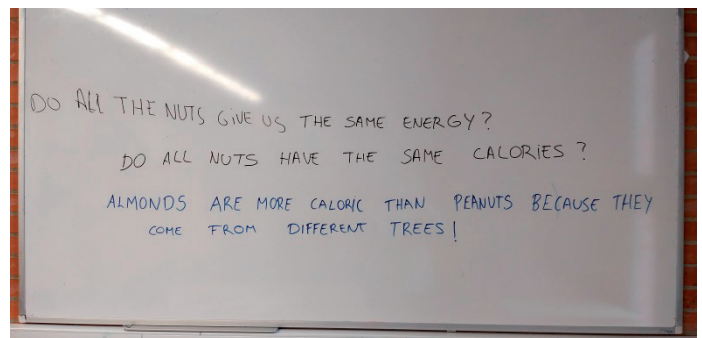 DO ALL THE NUTS GIVE US THE SAME ENERGY?
DO ALL NUTS HAVE THE SAME CALORIES?
ALMONDS ARE MORE CALORIC THAN PEANUTS BECAUSE THEY
COME FROM DIFFERENT TREES!